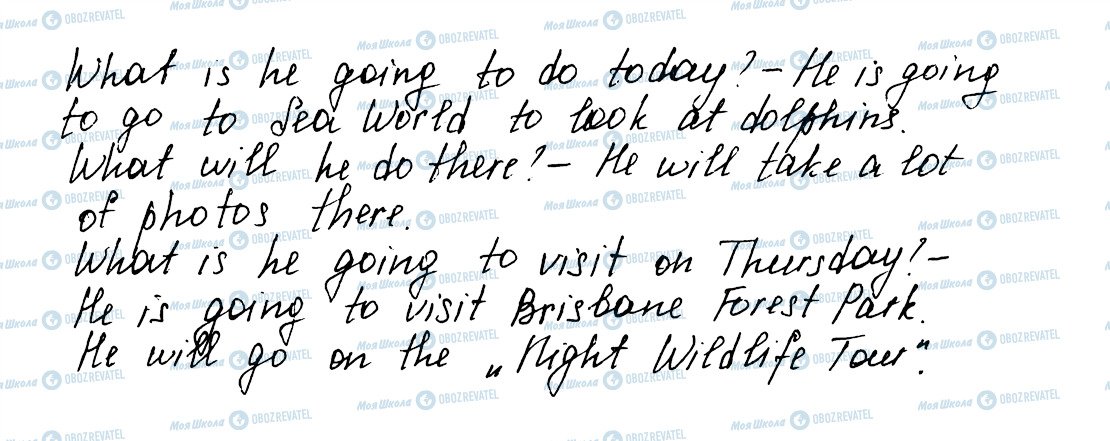 What is he going to do today? – He is going
to go to Sea World to look at dolphins.
What will he do there? – He will take a lot
of photos there.
What is he going to visit on Thursday? –
He is going to visit Brisbane Forest Park.
He will go on the „Night Wildlife Tour".